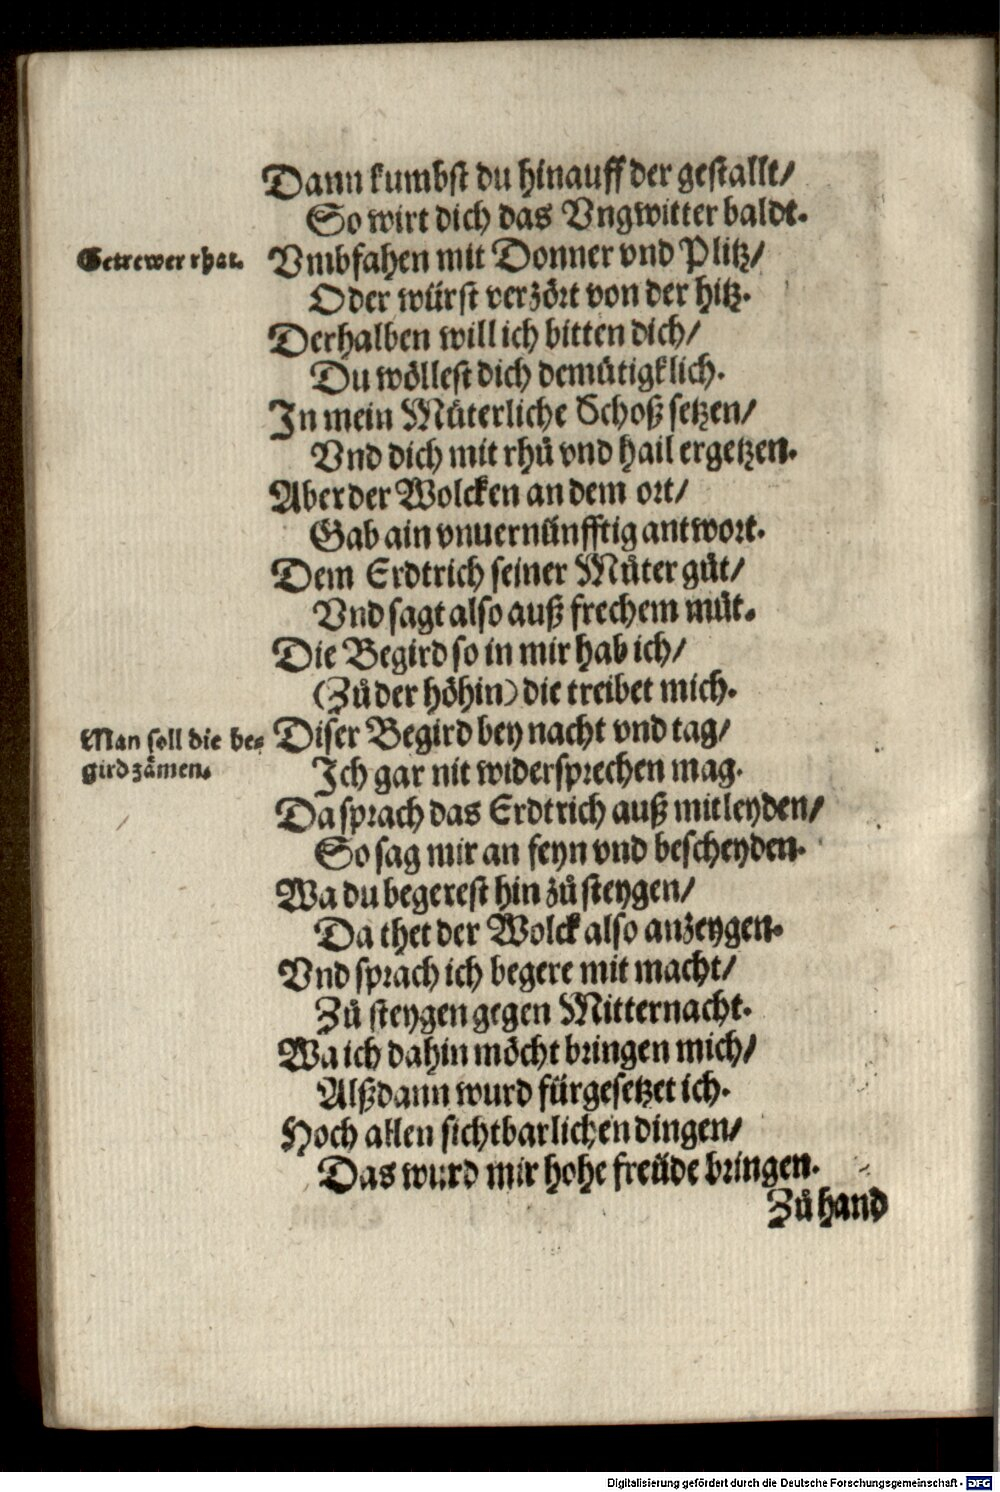 Dann kumbst du hinauff der gestallt/
So wirt dich das Vngwitter baldt.
Getrewer rhat.
Vmbfahen mit Donner vnd Plitz/
Oder würst verzört von der hitz.
Derhalben will ich bitten dich/
Du wöllest dich demütigklich.
In mein Müterliche Schoß setzen/
Vnd dich mit rhů vnd hail ergetzen.
Aber der Wolcken an dem ort/
Gab ain vnuernünfftig antwort.
Dem Erdtrich seiner Můter gůt/
Vnd sagt also auß frechem můt.
Die Begird so in mir hab ich/
(Zů der höhin) die treibet mich.
Man soll die be-
gird zämen.
Diser Begird bey nacht vnd tag/
Ich gar nit widersprechen mag.
Da sprach das Erdtrich auß mitleyden/
So sag mir an feyn vnd bescheyden.
Wa du begerest hin zů steygen/
Da thet der Wolck also anzeygen.
Vnd sprach ich begere mit macht/
Zů steygen gegen Mitternacht.
Wa ich dahin möcht bringen mich/
Alßdann wurd fürgesetzet ich.
Hoch allen sichtbarlichen dingen/
Das wurd mir hohe freüde bringen.
Zů hand
Digitalisierung gefördert durch die Deutsche Forschungsgemeinschaft - DFG